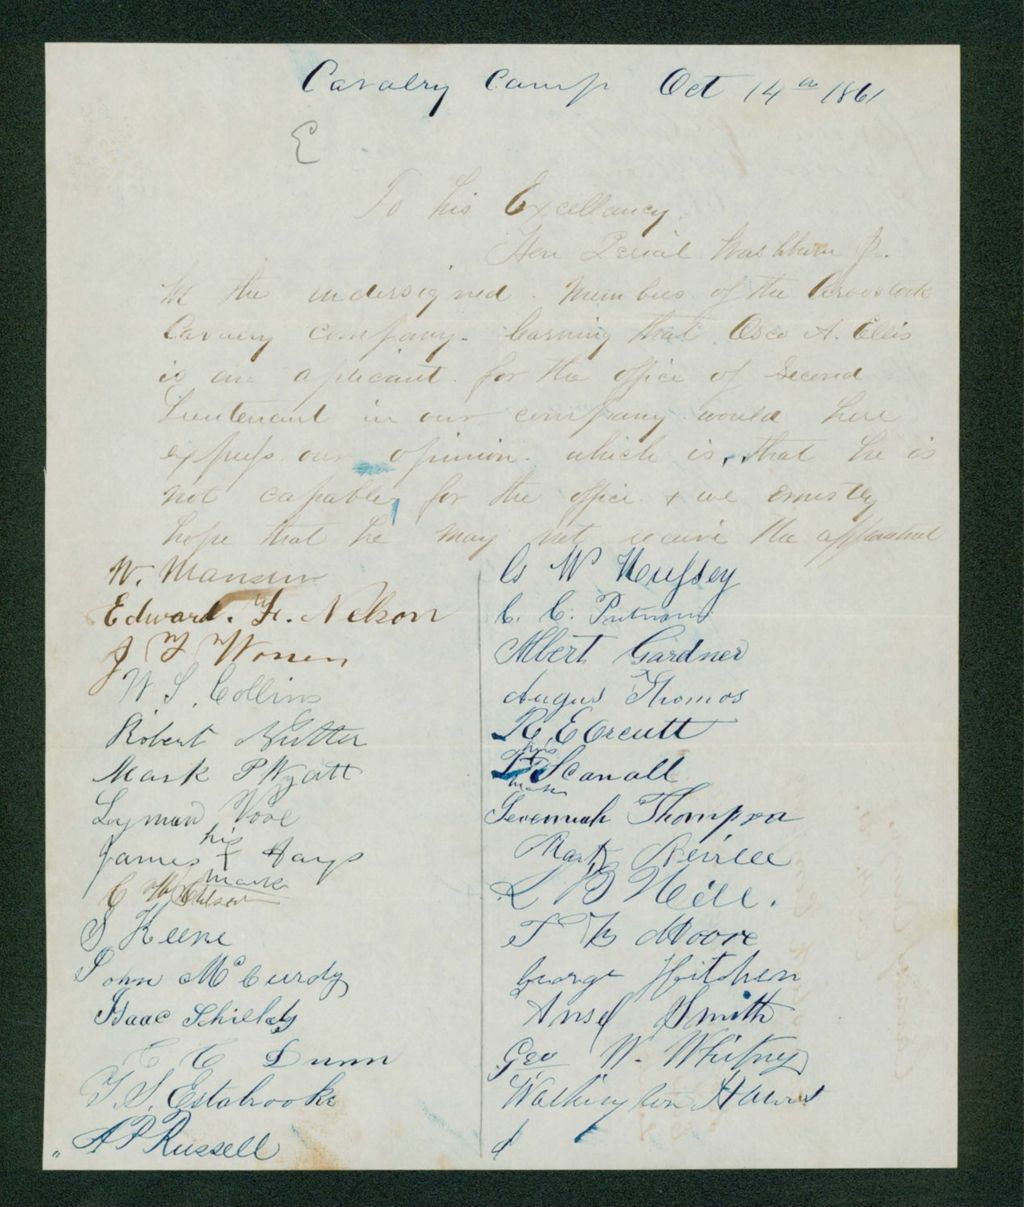 Cavalry Camp Oct 14th 1861
E
To his Excellancy
Hon Isriel Washburn Jr.
We the undersigned Members of the Aroostook
Cavalry company. learning that Osco A. Ellis
is an aplicant for the office of Second
Lieutenant in our company would here
express our opinion which is, that he is
not capable for the office & we ernistly
hope that he may not receive the
W. Manser
Edward. H. Nelson
J Y Worren
W. S. Collins
Robert Nutter
Mark P Wyatt
Lyman Vose
his
James X Hays
mark
C
S Keene
John McCurdy
Isaac
C C Dunn
T. S. Estabrooks
A P Russell
G W Hussey
C. C. Putnam
Albert Gardner
Angus Thomos
R E Orcutt
his
Scanall
mark
Jeremiah Thompson
Mark
L B Hill.
T B Moore
George Hitchen
Ansel Smith
Geo W. Whitney
Washington